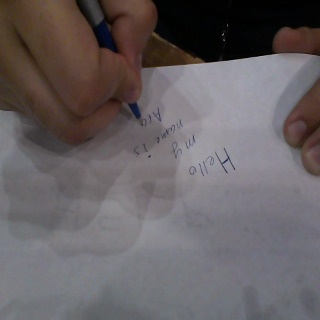 Hello
my
name is
Ara